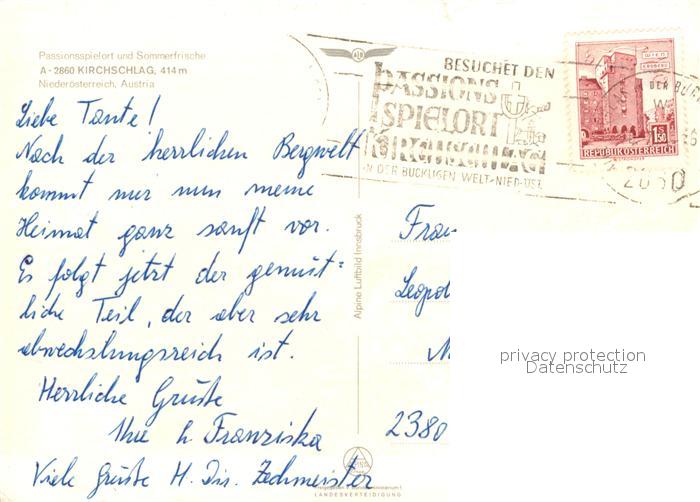 Passionsspielort und Sommerfrische
A-2860 KIRCHSCHLAG, 414 m
Niederösterreich, Austria
Liebe Tante!
Nach der herrlichen Bergwelt
kommt mir nun meine
Heimat ganz sanft vor.
Es folgt jetzt der gemüt=
liche Teil, der aber sehr
abwechslungsreich ist.
Herzliche Grüße
Ihre Franziska
Viele Grüße H. Dir. Zechmeister
Alpine Luftbild Innsbruck
BESUCHET DEN
PASSIONS
SPIELORT
KIRCHSCHLAG
IN DER BUCKLIGEN WELT-NIED-ÖST.
WIEN
ERDBERG
1S50
REPUBLIK ÖSTERREICH
DER BUC
2860
Frau
Leopol
2380
privacy protection
Datenschutz
LANDESVERTEIDIGUNG